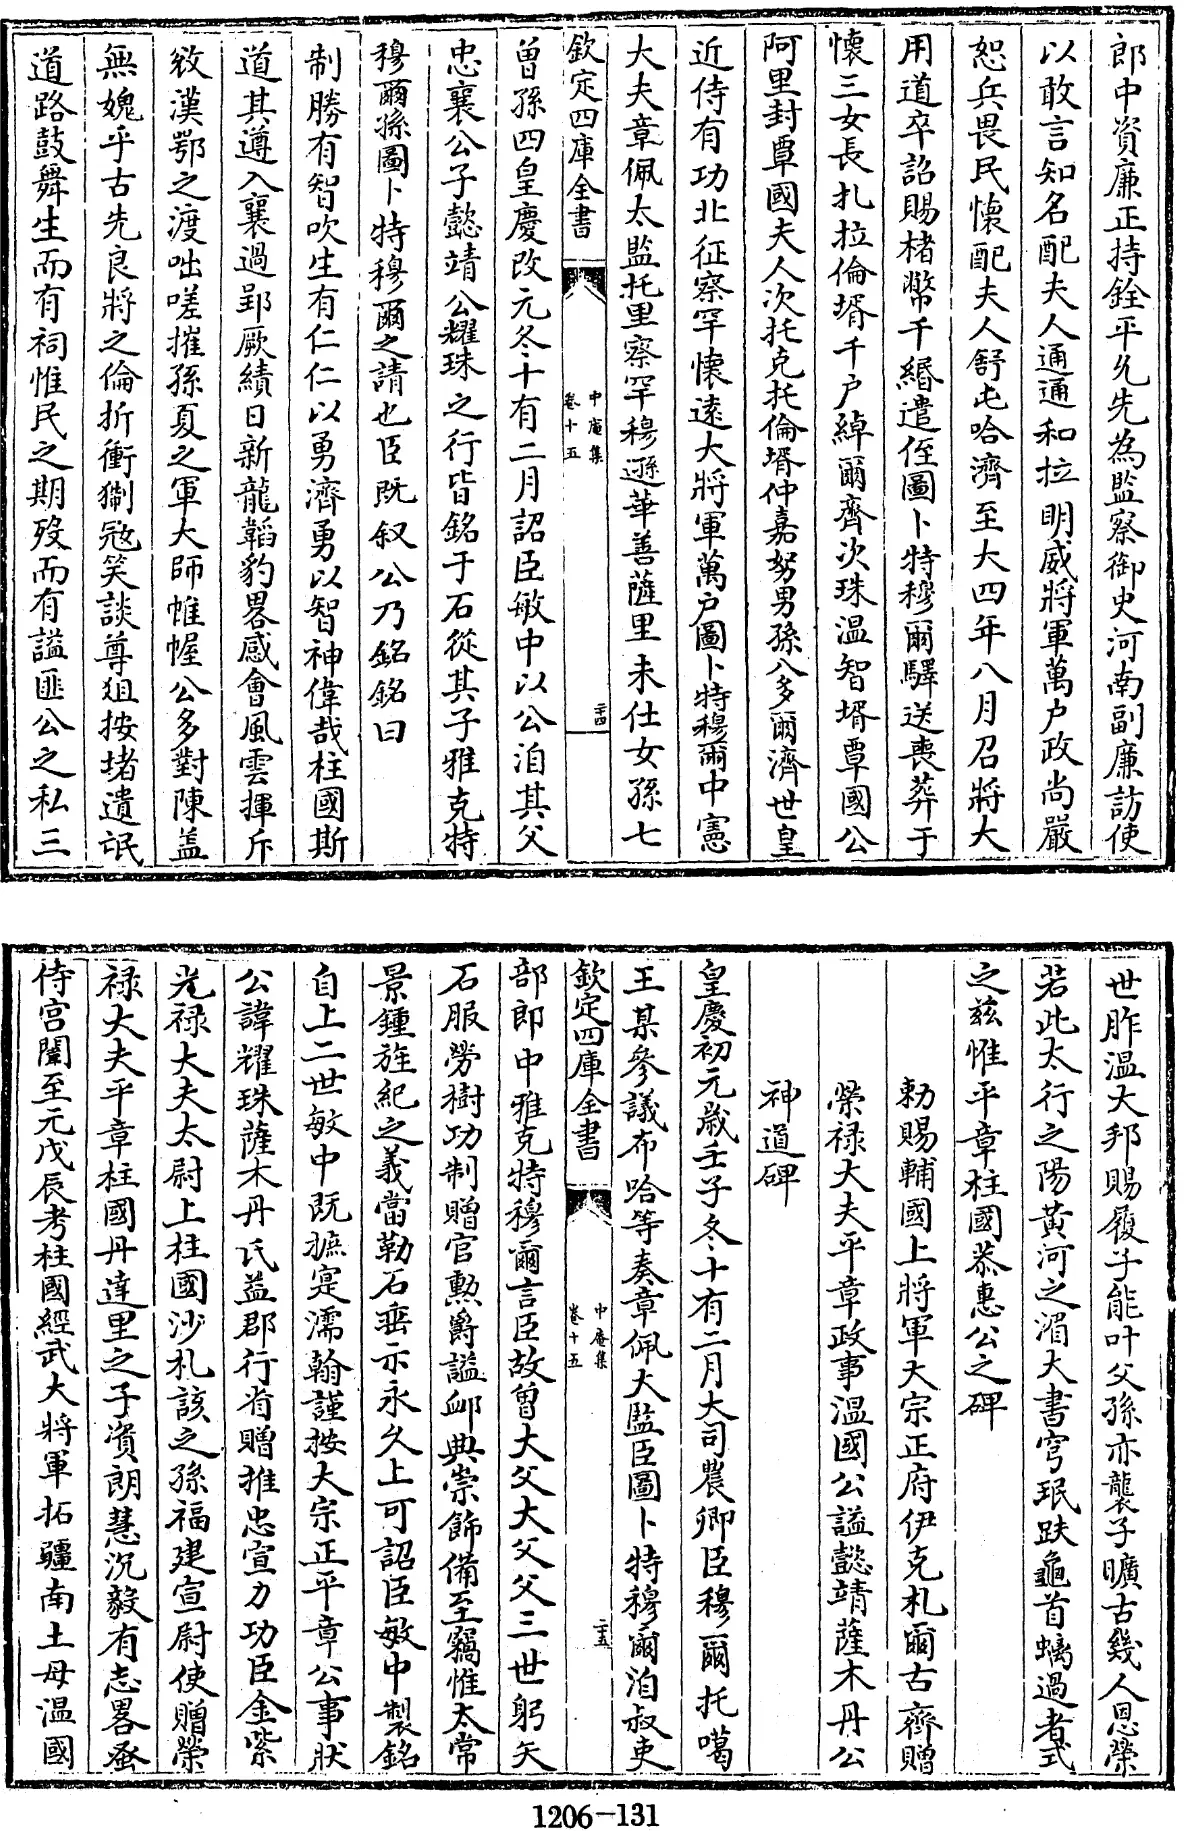 郎中資廉正持銓平允先為監察御史河南副廉訪使
以敢言知名配夫人通通和拉明威將軍萬戶政尚嚴
恕兵畏民懷配夫人舒屯哈濟至大四年八月召將大
用道卒詔賜楮幣千緡遣侄圖卜特穆爾驛送喪葬于
懷三女長扎拉倫壻千戶綽爾齊次珠溫智壻覃國公
阿里封覃國夫人次托克托倫壻仲嘉努男孫八多爾濟世皇
近侍有功北征察罕懷遠大將軍萬戶圖卜特穆爾中憲
大夫章佩太監托里察罕穆遜華善薩里未仕女孫七
欽定四庫全書
中庵集
卷十五
二十四
曾孫四皇慶改元冬十有二月詔臣敏中以公洎其父
忠襄公子懿靖公耀珠之行皆銘于石從其子雅克特
穆爾孫圖卜特穆爾之請也臣既叙公乃銘銘曰
制勝有智吹生有仁仁以勇濟勇以智神偉哉柱國斯
道其遵入襄過郢厥績日新龍韜豹畧感會風雲揮斥
敓漢鄂之渡咄嗟摧孫夏之軍大師帷幄公多對陳蓋
無媿乎古先良將之倫折衝禦冦笑談尊俎按堵遺氓
道路鼓舞生而有祠惟民之期歿而有諡匪公之私三
世胙溫大邦賜履子能叶父孫亦襲子曠古幾人恩榮
若此太行之陽黃河之湄大書穹珉趺龜首螭過者式
之兹惟平章柱國恭惠公之碑
勅賜輔國上將軍大宗正府伊克札爾古齊贈
榮祿大夫平章政事溫國公諡懿靖薩木丹公
神道碑
皇慶初元歲壬子冬十有二月大司農卿臣穆爾托噶
王某參議布哈等奏章佩大監臣圖卜特穆爾洎叔吏
欽定四庫全書
中庵集
卷十五
二十五
部郎中雅克特穆爾言臣故曾大父大父父三世躬矢
石服勞樹功制贈官勲爵諡卹典崇飾備至竊惟太常
景鍾旌紀之義當勒石垂示永久上可詔臣敏中製銘
自上二世敏中既摭寔濡翰謹按大宗正平章公事狀
公諱耀珠薩木丹氏益郡行省贈推忠宣力功臣金紫
光祿大夫太尉上柱國沙札該之孫福建宣尉使贈榮
祿大夫平章柱國丹達里之子資朗慧沉毅有志畧蚤
侍宮闈至元戊辰考柱國經武大將軍拓疆南土母溫國
1206-131